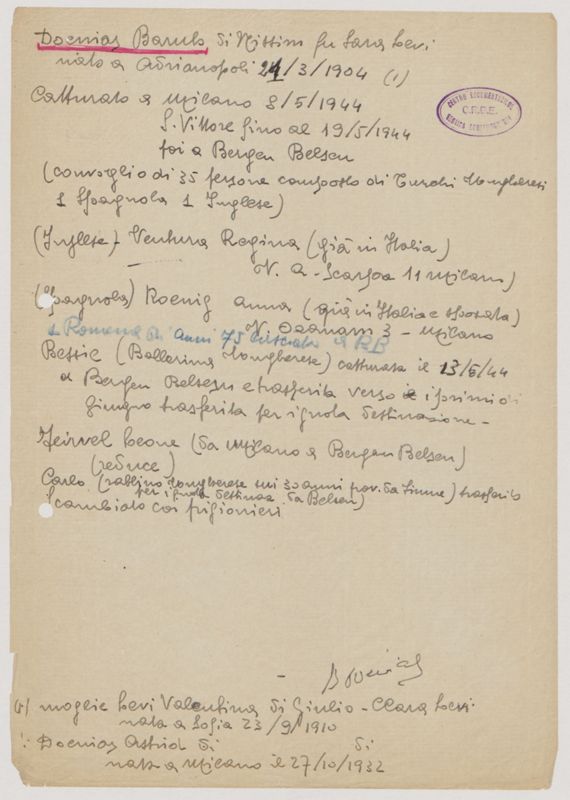 Docnias Baruh di Nissim fu Sara Levi
nato a Adrianopoli 21/3/1904 (1)
Catturato a Milano 8/5/1944
S. Vittore fino al 19/5/1944
poi a Bergen Belsen
(convoglio di 35 persone composto di Turchi Ungheresi
1 Spagnola 1 Inglese)
(Inglese) - Ventura Regina (già in Italia)
V. A. Scarpa 11 Milano)
(Spagnola) Koenig Anna (già in Italia e sposata)
V. Ozanam 3 - Milano
1 Romena di anni 75 lasciata a BB
Bessie (Ballerina Ungherese) catturata il 13/5/44
a Bergen Belsen e trasferita verso i primi di
giugno trasferita per ignota destinazione -
Leone (da Milano a Bergen Belsen)
(reduce)
Carlo (rabbino Ungherese sui 30 anni prov. da Fiume) trasferito
per ignota destinaz da Belsen)
Scambiato con prigionieri
(1) moglie Levi Valentina di Giulio - Clara Levi
nata a Sofia 23/9/1910
Docnias Astrid di di
nata a Milano il 27/10/1932
C.R.D.E.